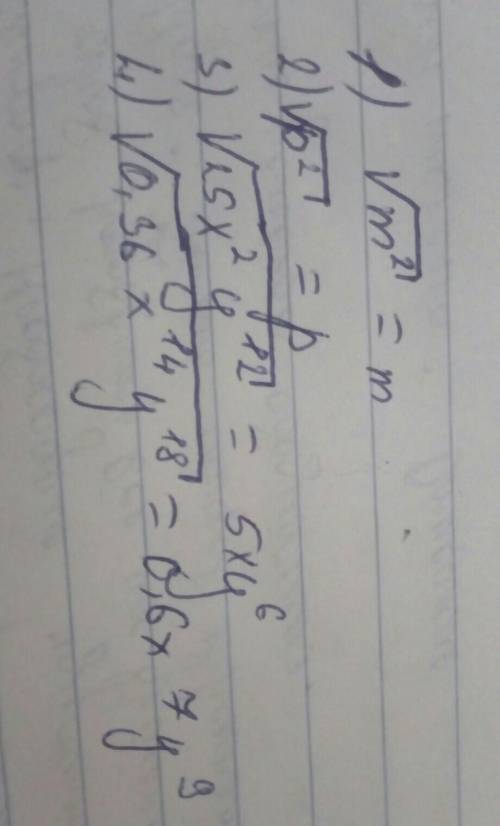 1) √m² = m
2) √p² = p
3) √25x²y¹² = 5xy⁶
4) √0,36x¹⁴y¹⁸ = 0,6x⁷y⁹